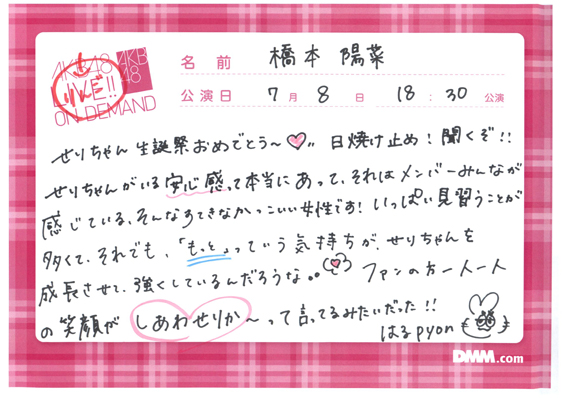 名前 橋本 陽菜
AKB48
AKB48
りんご!!
ON DEMAND
公演日 7月 8日 18:30公演
せりちゃん 生誕祭おめでとう〜 日焼け止め!聞くぞ!!
せりちゃんがいる安心感って本当にあって、それはメンバーみんなが
感じている、そんなすてきなかっこいい女性です!いっぱい見習うことが
多くて、それでも、「もっと」っていう気持ちが、せりちゃんを
成長させて、強くしているんだろうな。。 ファンの方一人一人
の笑顔が しあわせりか〜って言ってるみたいだった!!
はるpyon
DMM.com